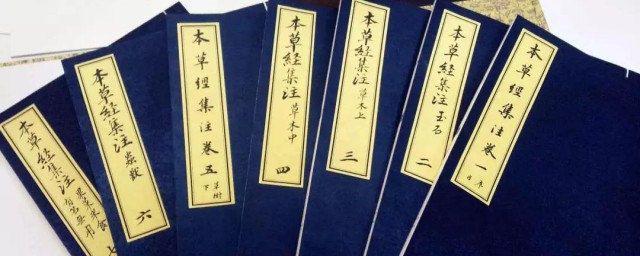 本草經集注卷一
本草经集注玉石二
本草经集注草木上三
本草经集注草木中四
本草經集注卷五
下
本草经集注虫獸六
本草经集注果菜米食
有名無用
七